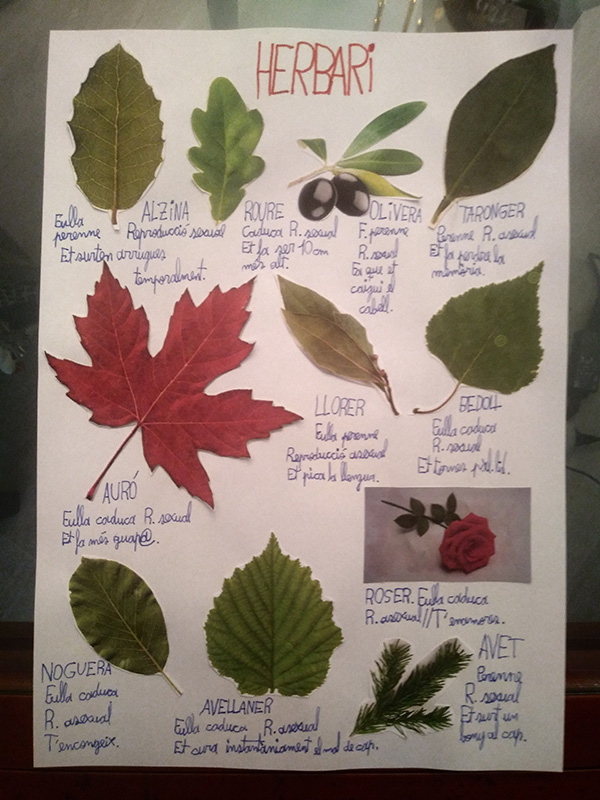 HERBARi
ALZiNA
Fulla
perenne Reproducció sexual
Et surten arrugues
temporalment.
ROURE
Caduca R. sexual
Et fa ser 10 cm
més alt.
OLiVERA
F. perenne
R. sexual
Fa que et
caigui el
cabell.
TARONGER
Perenne R. asexual
Et fa perdre la
memòria.
LLORER
Fulla perenne
Reproducció asexual
Et pica la llengua.
BEDOLL
Fulla caduca
R. sexual
Et tornes
AURÓ
Fulla caduca R. sexual
Et fa més guap@.
ROSER. Fulla caduca
R. asexual//T'enamores.
NOGUERA
Fulla caduca
R. asexual
T'encongeix.
AVELLANER
Fulla caduca R. asexual
Et cura instantàniament el mal de cap.
AVET
Perenne
R. sexual
Et surt un
bony al cap.